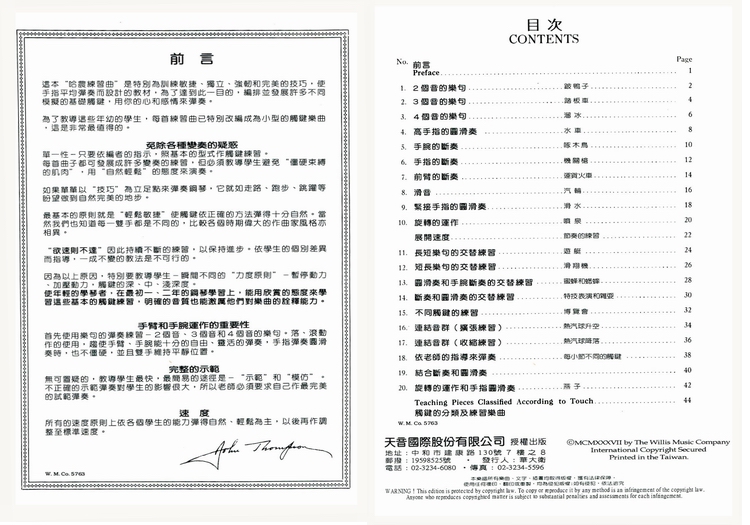 前 言
這本“哈農練習曲”是特別為訓練敏捷、獨立、強韌和完美的技巧，使
手指平均彈奏而設計的教材，為了達到此一目的，編排並發展許多不同
模擬的基礎觸鍵，用你的心和感情來彈奏。
為了教導這些年幼的學生，每首練習曲已特別改編成為小型的觸鍵樂曲
，這是非常最值得的。
免除各種變奏的疑惑
單一性－只要依編者的指示，照基本的型式作觸鍵練習。
每首曲子都可發展成許多變奏的練習，但必須教導學生避免“僵硬束縛
的肌肉”，用“自然輕鬆”的態度來演奏。
如果單單以“技巧”為立足點來彈奏鋼琴，它就如走路、跑步、跳躍等
盼望做到自然完美的地步。
最基本的原則就是“輕鬆敏捷”使觸鍵依正確的方法彈得十分自然。當
然我們也知道每一雙手都是不同的，比較各個時期偉大的作曲家風格亦
相異。
“欲速則不達”因此持續不斷的練習，以保持進步。依學生的個別差異
而指導，一成不變的教法是不可行的。
因為以上原因，特別要教導學生－瞬間不同的“力度原則”－暫停動力
、加壓動力，觸鍵的深、中、淺深度。
使年輕的學琴者，在最初一、二年的鋼琴學習上，能用欣賞的態度來學
習這些基本的觸鍵練習，明確的音質也能激勵他們對樂曲的詮釋能力。
手臂和手腕運作的重要性
首先使用樂句的彈奏練習－2個音、3個音和4個音的樂句。落、滾動
作的使用，趨使手臂、手腕能十分的自由、靈活的彈奏，手指彈奏圓滑
奏時，也不僵硬，並且雙手維持平靜位置。
完整的示範
無可置疑的，教導學生最快，最簡易的途徑是－“示範”和“模仿”。
不正確的示範彈奏對學生的影響很大，所以老師必須要求自己作最完美
的試範彈奏。
速 度
所有的速度原則上依各個學生的能力彈得自然、輕鬆為主，以後再作調
整至標準速度。
John Thompson
W. M. Co. 5763
目 次
CONTENTS
No. Page
前言
Preface 1
1. 2個音的樂句 跛鴨子 2
2. 3個音的樂句 踏板車 4
3. 4個音的樂句 溜冰 6
4. 高手指的圓滑奏 水車 8
5. 手腕的斷奏 啄木鳥 10
6. 手指的斷奏 機關槍 12
7. 前臂的斷奏 運貨火車 14
8. 滑音 汽輪 16
9. 緊接手指的圓滑奏 滑水 18
10. 旋轉的運作 噴泉 20
展開速度 節奏的練習 22
11. 長短樂句的交替練習 遊艇 24
12. 短長樂句的交替練習 滑翔機 26
13. 圓滑奏和手腕斷奏的交替練習 蜜蜂和蟋蟀 28
14. 斷奏和圓滑奏的交替練習 特技表演和獨耍 30
15. 不同觸鍵的練習 博覽會 32
16. 連結音群（擴張練習） 熱汽球升空 34
17. 連結音群（收縮練習） 熱汽球降落 36
18. 依老師的指導來彈奏 每小節不同的觸鍵 38
19. 結合斷奏和圓滑奏 40
20. 旋轉的運作和手指圓滑奏 燕子 42
Teaching Pieces Classified According to Touch 44
觸鍵的分類及練習樂曲
W. M. Co. 5763
天音國際股份有限公司 授權出版
地址：中和市建康路130號7樓之8
郵撥：19598525號 · 發行人：華大衛
電話：02-3234-6080 · 傳真：02-3234-5596
©MCMXXXVII by The Willis Music Company
International Copyright Secured
Printed in the Taiwan.
本樂譜所有樂曲、文字、插畫均取得版權，獲有法律保障。
使用任何複印、翻印或重製，均為侵犯版權，如有侵犯，依法追究
WARNING! This edition is protected by copyright law. To copy or reproduce it by any method is an infringement of the copyright law.
Anyone who reproduces copyrighted matter is subject to substantial penalties and assessments for each infringement.